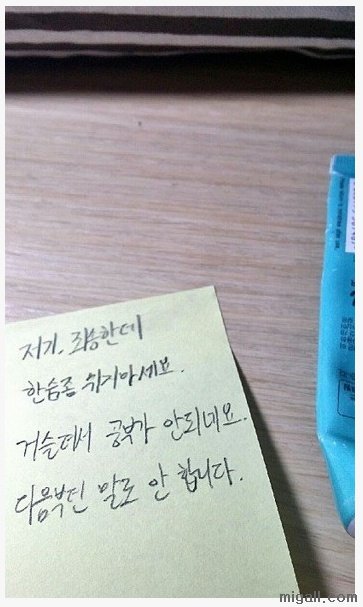 저기. 죄송한데
한숨좀 쉬지마세요.
거슬려서 공부가 안되네요.
다음부턴 말로 안 합니다.
migall.com